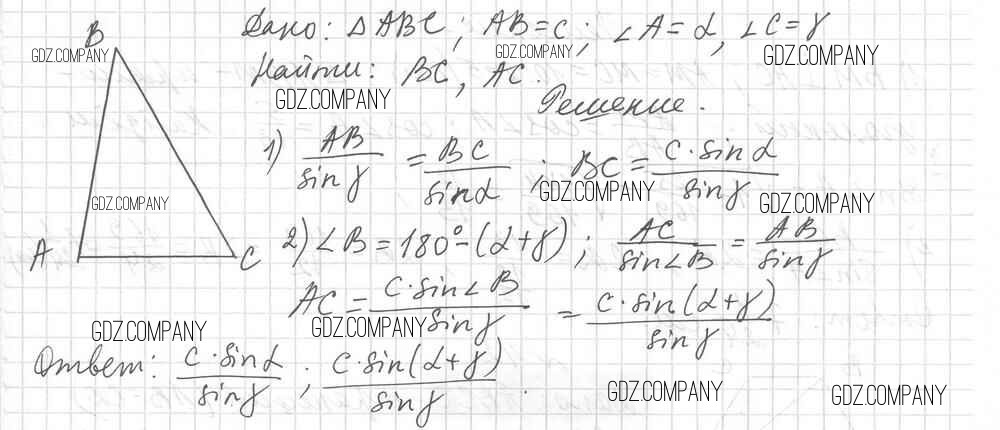 Дано: △ABC; AB=c; ∠A=α, ∠C=γ
GDZ.COMPANY GDZ.COMPANY GDZ.COMPANY
Найти: BC, AC.
GDZ.COMPANY
Решение.
1) AB/sinγ = BC/sinα ; BC = c·sinα/sinγ
GDZ.COMPANY GDZ.COMPANY GDZ.COMPANY
2) ∠B = 180°-(α+γ) ; AC/sin∠B = AB/sinγ
AC = c·sin∠B/sinγ = c·sin(α+γ)/sinγ
GDZ.COMPANY GDZ.COMPANY
Ответ: c·sinα/sinγ ; c·sin(α+γ)/sinγ .
GDZ.COMPANY GDZ.COMPANY
B
A C